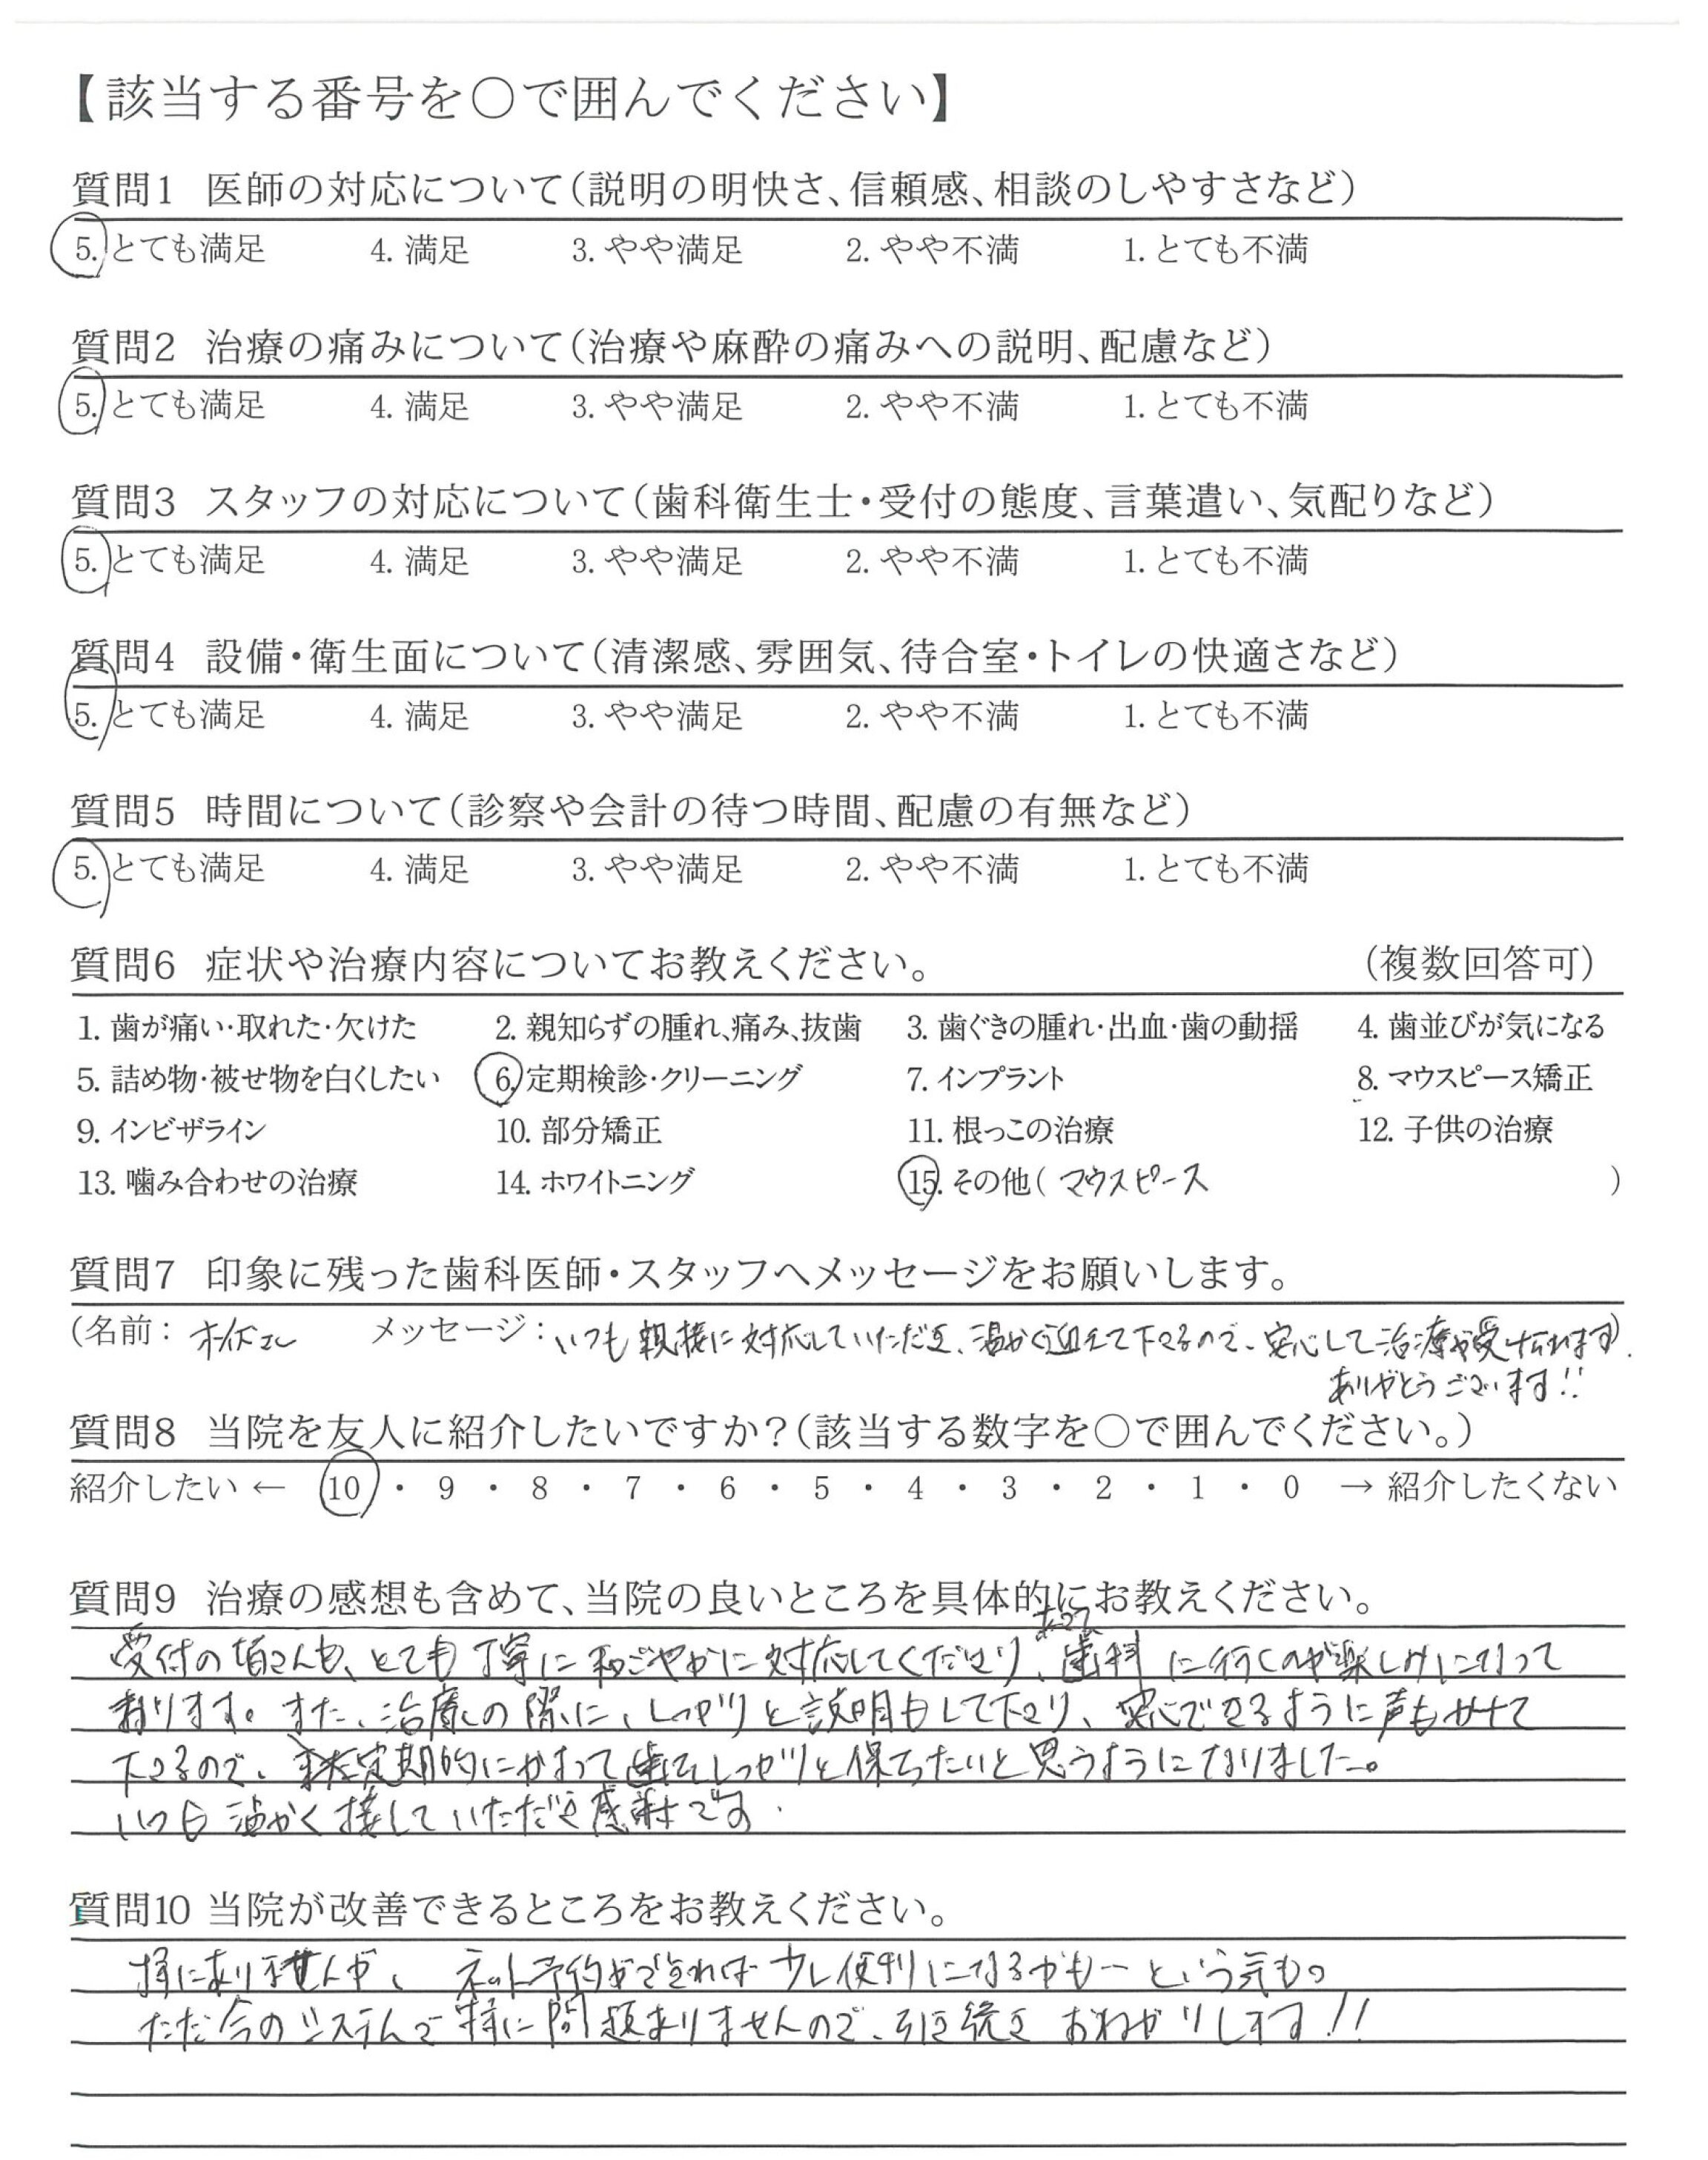 【該当する番号を○で囲んでください】
質問1 医師の対応について(説明の明快さ、信頼感、相談のしやすさなど)
5. とても満足 4. 満足 3. やや満足 2. やや不満 1. とても不満
質問2 治療の痛みについて(治療や麻酔の痛みへの説明、配慮など)
5. とても満足 4. 満足 3. やや満足 2. やや不満 1. とても不満
質問3 スタッフの対応について(歯科衛生士・受付の態度、言葉遣い、気配りなど)
5. とても満足 4. 満足 3. やや満足 2. やや不満 1. とても不満
質問4 設備・衛生面について(清潔感、雰囲気、待合室・トイレの快適さなど)
5. とても満足 4. 満足 3. やや満足 2. やや不満 1. とても不満
質問5 時間について(診察や会計の待つ時間、配慮の有無など)
5. とても満足 4. 満足 3. やや満足 2. やや不満 1. とても不満
質問6 症状や治療内容についてお教えください。 (複数回答可)
1. 歯が痛い・取れた・欠けた 2. 親知らずの腫れ、痛み、抜歯 3. 歯ぐきの腫れ・出血・歯の動揺 4. 歯並びが気になる
5. 詰め物・被せ物を白くしたい 6. 定期検診・クリーニング 7. インプラント 8. マウスピース矯正
9. インビザライン 10. 部分矯正 11. 根っこの治療 12. 子供の治療
13. 噛み合わせの治療 14. ホワイトニング 15. その他( マウスピース )
質問7 印象に残った歯科医師・スタッフへメッセージをお願いします。
(名前: メッセージ: いつも親接に対応していただき、温かく迎えて下さるので、安心して治療が受けられます)
ありがとうございます!!
質問8 当院を友人に紹介したいですか?(該当する数字を○で囲んでください。)
紹介したい ← 10 ・ 9 ・ 8 ・ 7 ・ 6 ・ 5 ・ 4 ・ 3 ・ 2 ・ 1 ・ 0 → 紹介したくない
質問9 治療の感想も含めて、当院の良いところを具体的にお教えください。
受付の皆さんも、とても丁寧に和ごやかに対応してくださり、歯科に行くのが楽しみになって
おります。また、治療の際に、しっかりと説明もして下さり、安心できるように声もかけて
下さるので、定期的にかよって歯をしっかりと保ちたいと思うようになりました。
いつも温かく接していただき感謝です.
質問10 当院が改善できるところをお教えください。
特にありませんが、ネット予約ができれば少し便利になるかも―という気も。
ただ今のシステムで特に問題ありませんので、引き続きおねがいします!!